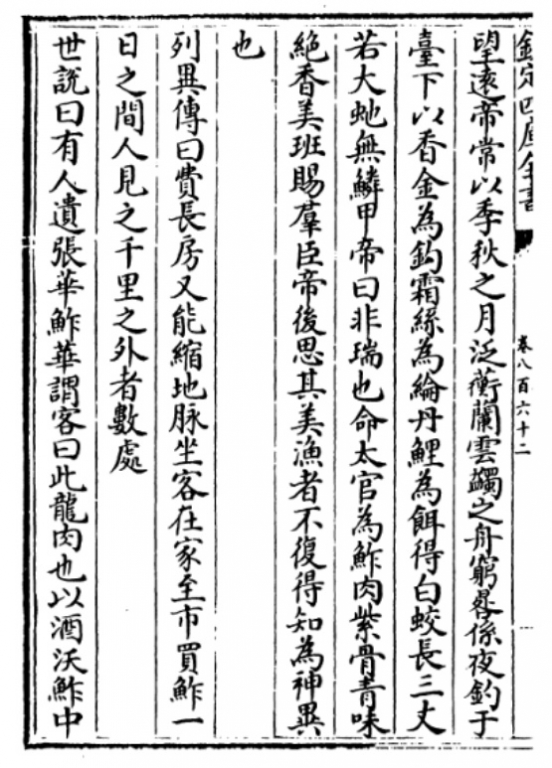 欽定四庫全書
卷八百六十二
望遠帝常以季秋之月泛蘅蘭雲鷁之舟窮晷係夜釣于
臺下以香金為鈎霜絲為綸丹鯉為餌得白蛟長三丈
若大虵無鱗甲帝曰非瑞也命太官為鮓肉紫骨青味
絶香美班賜羣臣帝後思其美漁者不復得知為神異
也
列異傳曰費長房又能縮地脉坐客在家至市買鮓一
日之間人見之千里之外者數處
世說曰有人遺張華鮓華謂客曰此龍肉也以酒沃鮓中